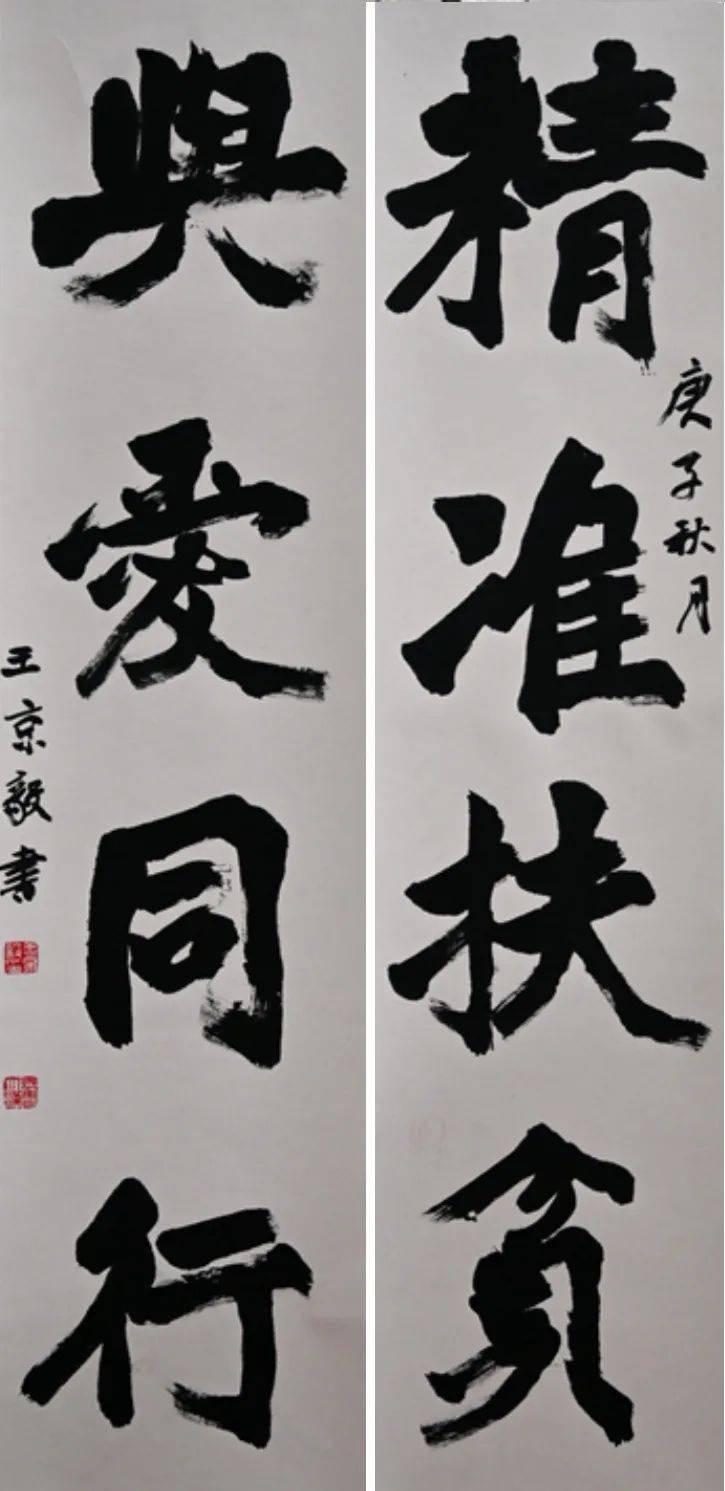 精准扶贫
庚子秋月
與愛同行
王京毅書